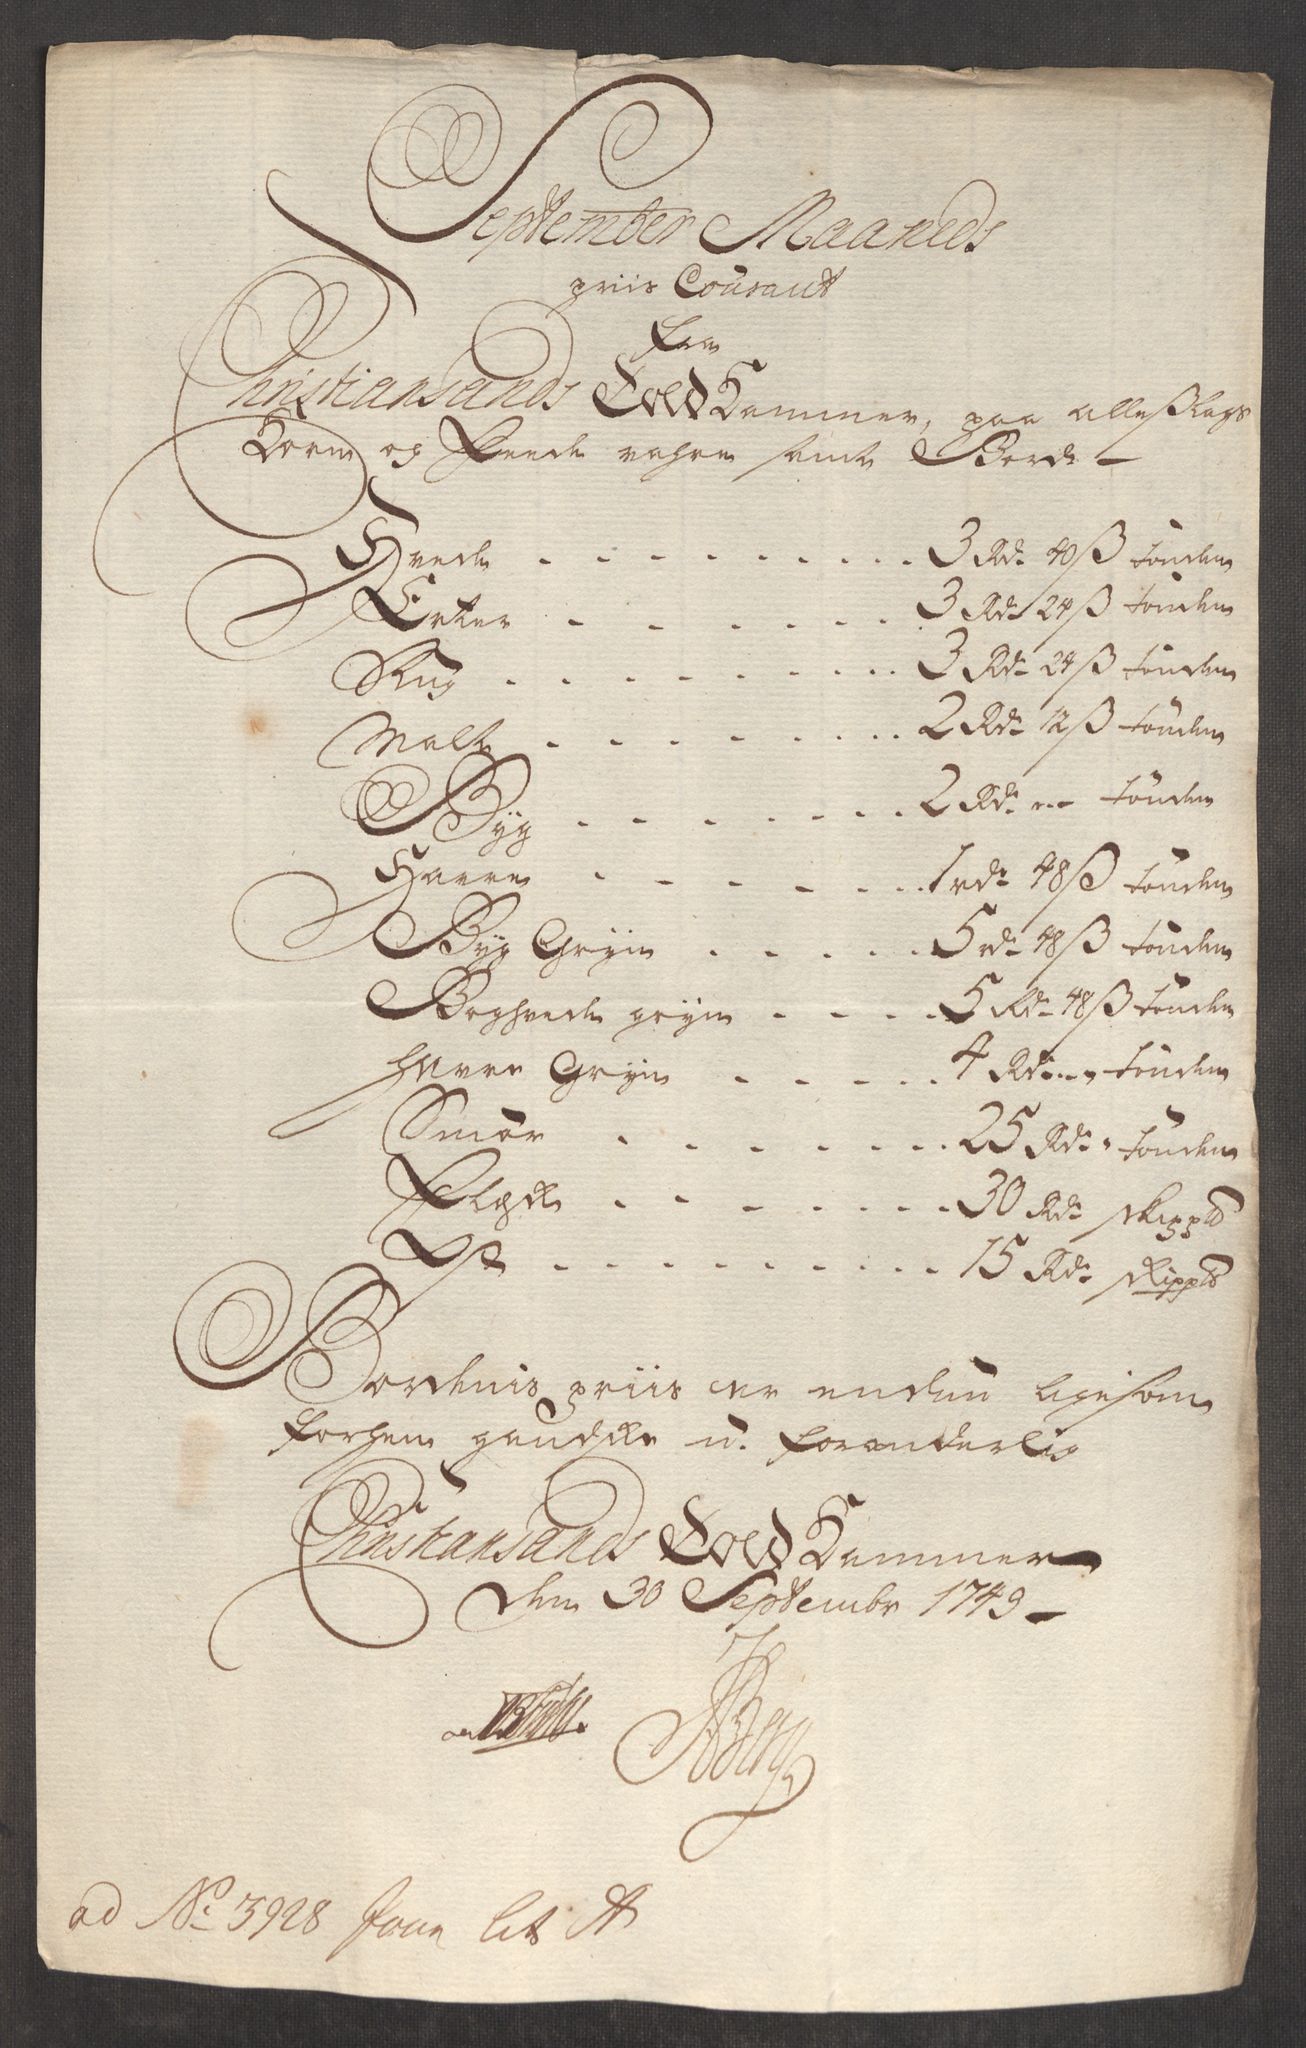 September Maaneds
priis Courant
fra
Christiansands Told Kammer, paa alle slags
Korn og Feede vahre samt Borde
Hvede . . . . . . . . . 3 Rd 40 ß tønden
Erter . . . . . . . 3 Rd 24 ß tønden
Rug . . . . . . . . . 3 Rd 24 ß tønden
Malt . . . . . . . . 2 Rd 12 ß tønden
Byg . . . . . . . 2 Rd " - tønden
Havre . . . . . . . 1 rd 48 ß tønden
Byg Gryn . . . . . 5 rd 48 ß tønden
Boghvede gryn . . . . 5 Rd 48 ß tønden
Havre Gryn . . . . . 4 Rd " tønden
Smør . . . . . . . 25 Rd " tønden
Flesk . . . . . . . 30 Rd skippd
Ost . . . . . . . . . . 15 Rd skippd
Bordenis priis er endnu ligesom
forhen gandske u-foranderlig
Christiansands Told Kammer
den 30 Septembr 1749
Berg
ad No 3928 Jour lit A